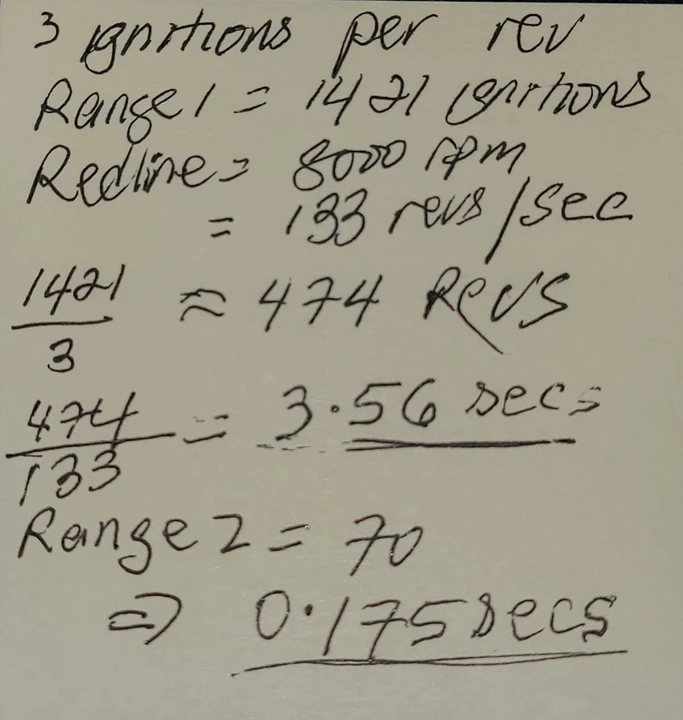 3 ignitions per rev
Range 1 = 1421 ignitions
Redline = 8000 rpm
= 133 revs/sec
1421/3 ≈ 474 Revs
474/133 = 3.56 secs
Range 2 = 70
⇒ 0.175 secs